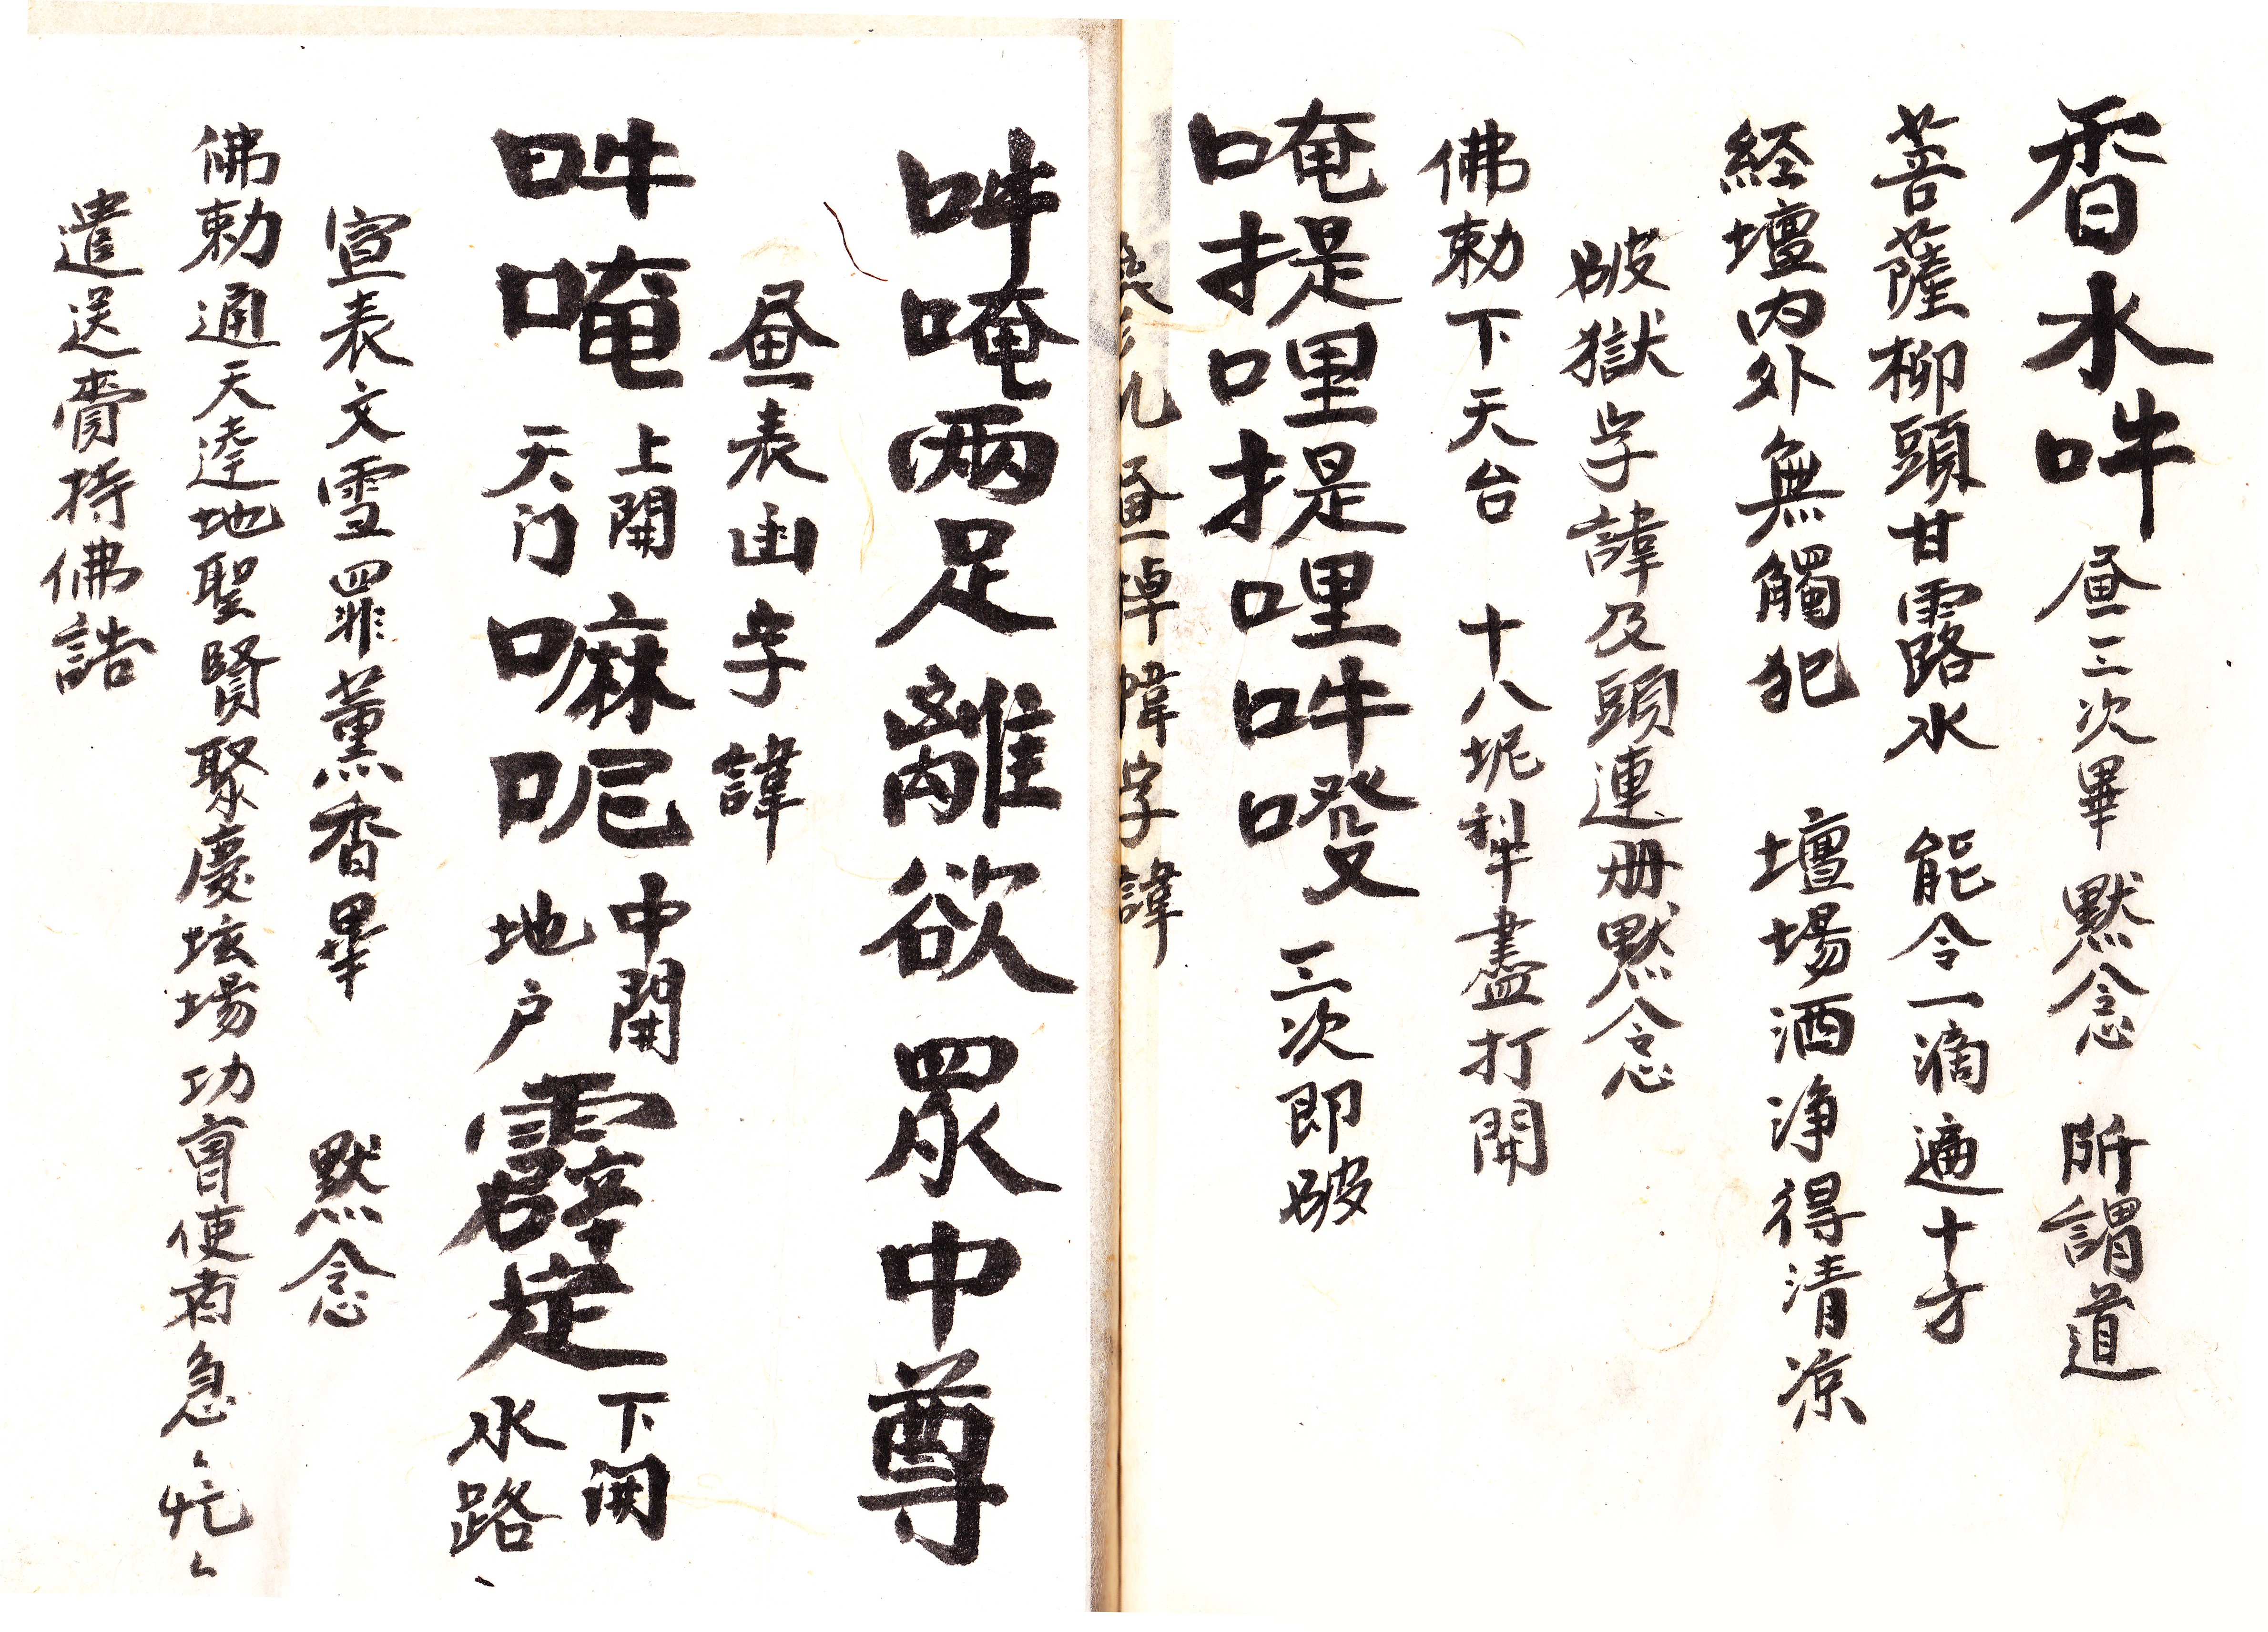 香水吽 畫三次畢 默念 所謂道
菩薩柳頭甘露水 能令一滴遍十方
經壇内外無觸犯 壇場洒浄得清凉
破獄字諱及頭連册默念
佛勅下天台 十八坭犁盡打開
唵提哩提哩吽㗳 三次即破
字諱
吽唵兩足離欲眾中尊
畫表函字諱
吽唵 上開天门 嘛呢 中開地户 霹㝎 下開水路
宣表文雪罪薰香畢 默念
佛勅通天達地聖賢聚慶坛場功曺使者急〻忙〻
遣送賫持佛誥